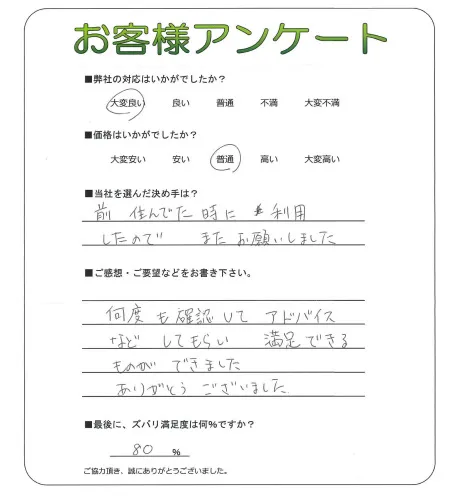 お客様アンケート
■弊社の対応はいかがでしたか？
大変良い 良い 普通 不満 大変不満
■価格はいかがでしたか？
大変安い 安い 普通 高い 大変高い
■当社を選んだ決め手は？
前 住んでた時に 利用
したので またお願いしました
■ご感想・ご要望などをお書き下さい。
何度も確認して アドバイス
など してもらい 満足できる
ものが できました
ありがとう ございました
■最後に、ズバリ満足度は何%ですか？
80 %
ご協力頂き、誠にありがとうございました。